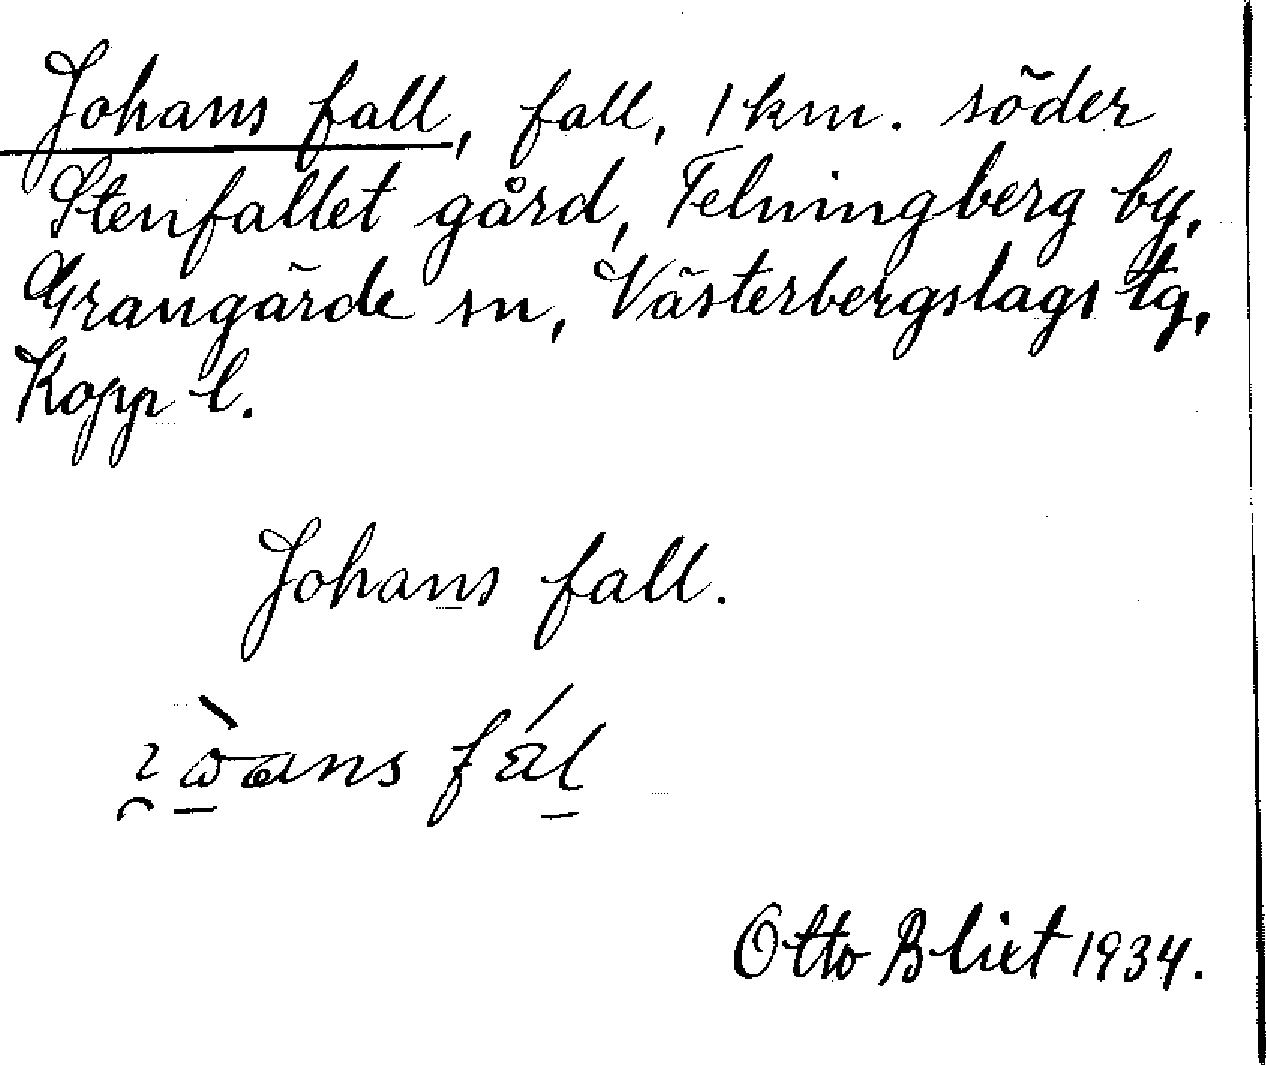 Johans fall, fall, 1 km. söder
Stenfallet gård, Telningberg by,
Grangärde sn, Västerbergslags tg,
Kopp l.
Johans fall.
fál
Otto Blixt 1934.